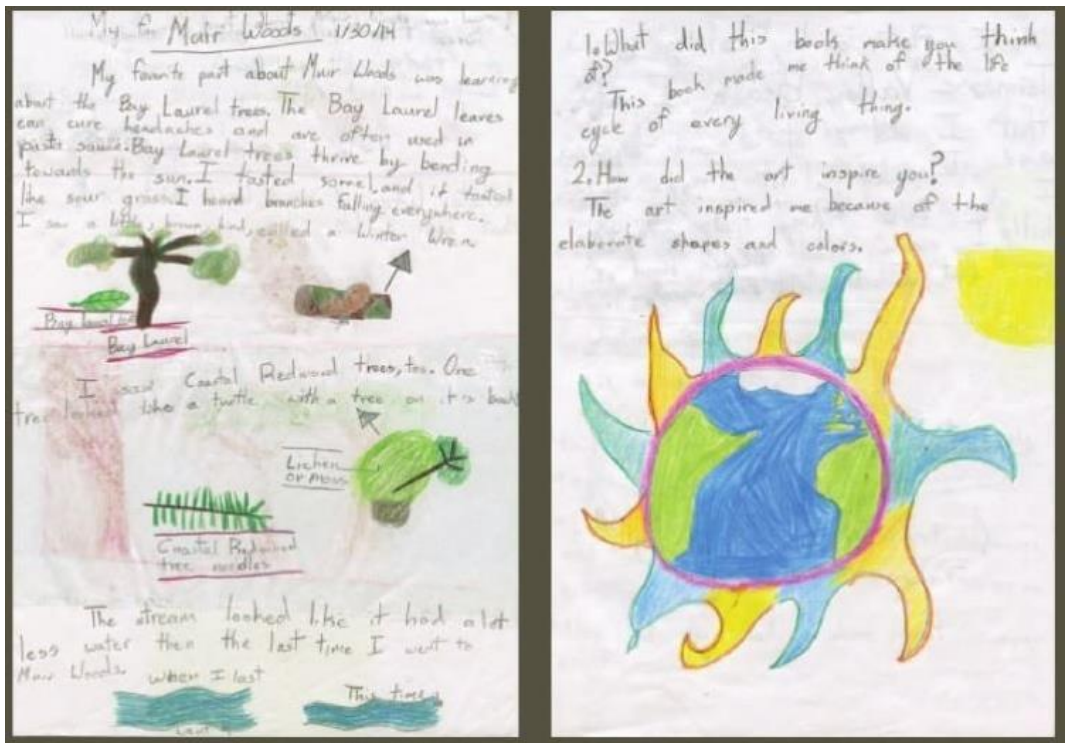 Muir Woods 1/30/14
My favorite part about Muir Woods was learning
about the Bay Laurel trees. The Bay Laurel leaves
can cure headaches and are often used in
sauce. Bay Laurel trees thrive by bending
towards the sun. I tasted sorrel, and it tasted
like sour grass. I heard branches falling everywhere.
I saw a little, brown bird, called a Winter Wren
Bay laurel
Bay Laurel
I saw Coastal Redwood trees, too. One
tree looked like a turtle with a tree on it is back
Lichen
or moss
Coastal Redwood
tree needles
The stream looked like it had a lot
less water then the last time I went to
Muir Woods.
when I last
went
This time
1. What did this book make you think
of?
This book made me think of the life
cycle of every living thing.
2. How did the art inspire you?
The art inspired me because of the
elaborate shapes and colors.